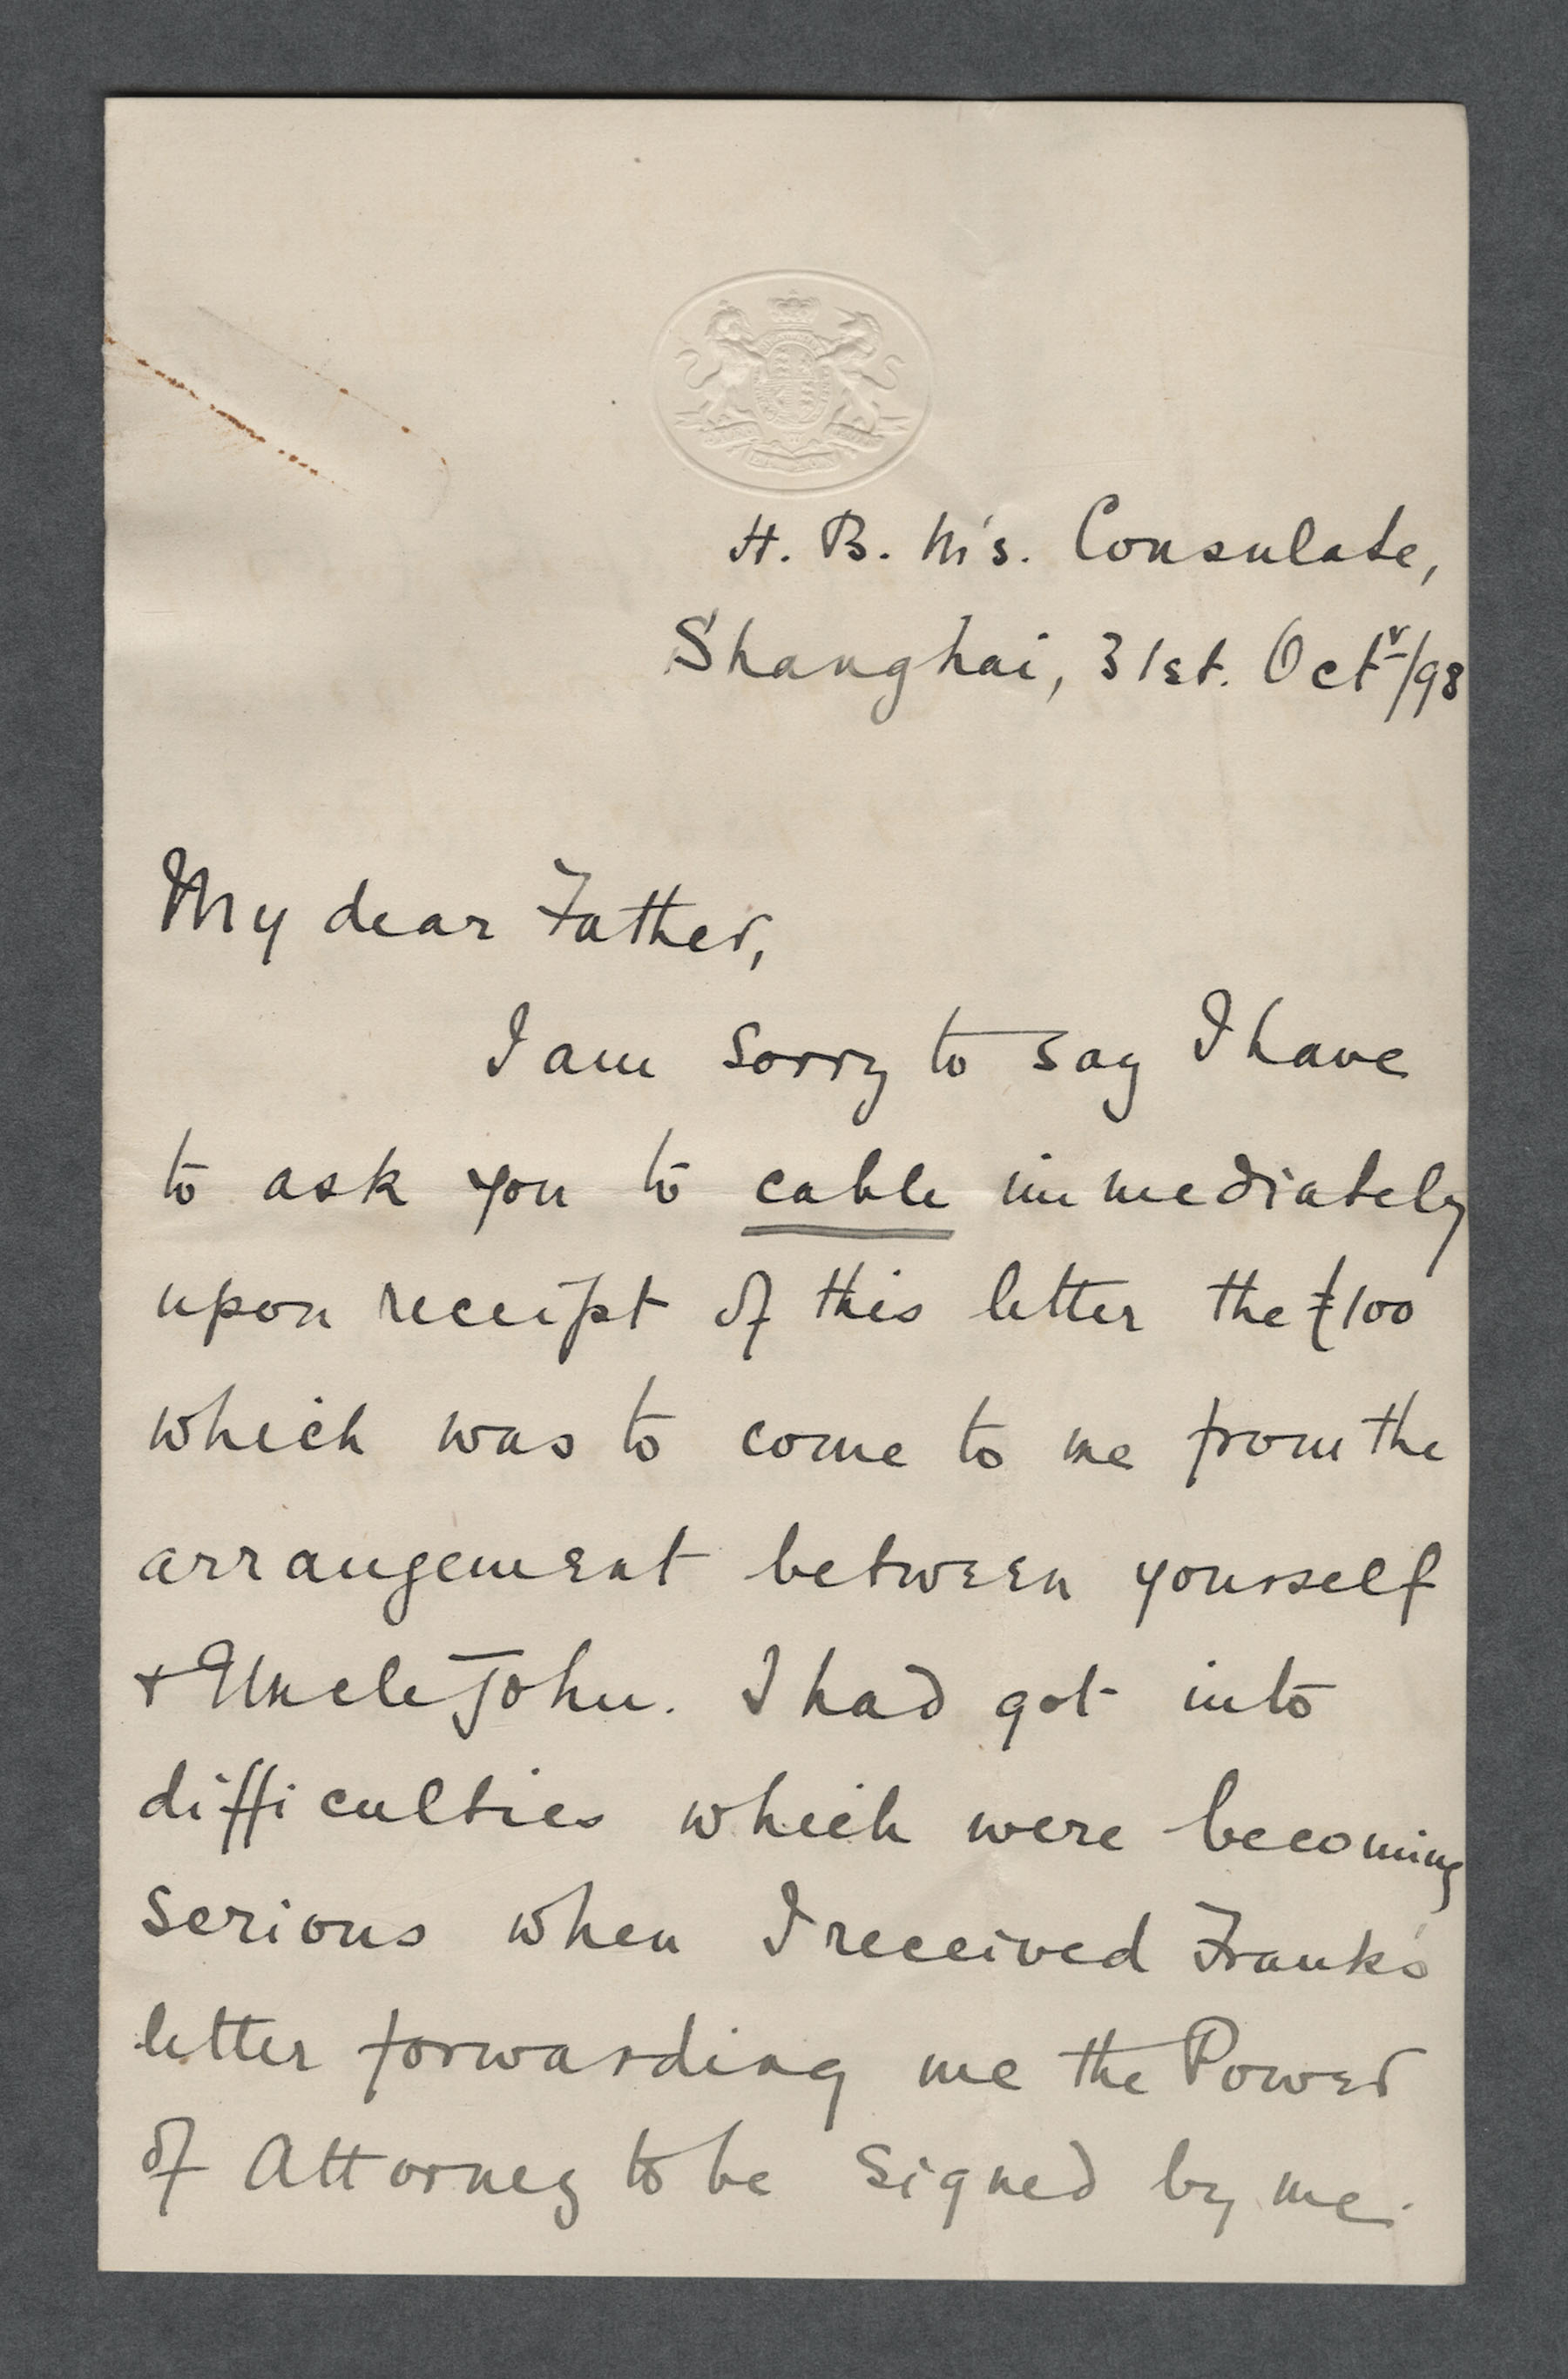 H. B. M's. Consulate,
Shanghai, 31st. Octr/98
My dear Father,
I am sorry to say I have
to ask you to cable immediately
upon receipt of this letter the £100
which was to come to me from the
arrangement between yourself
+ Uncle John. I had got into
difficulties which were becoming
serious when I received Frank's
letter forwarding me the Power
of Attorney to be signed by me.